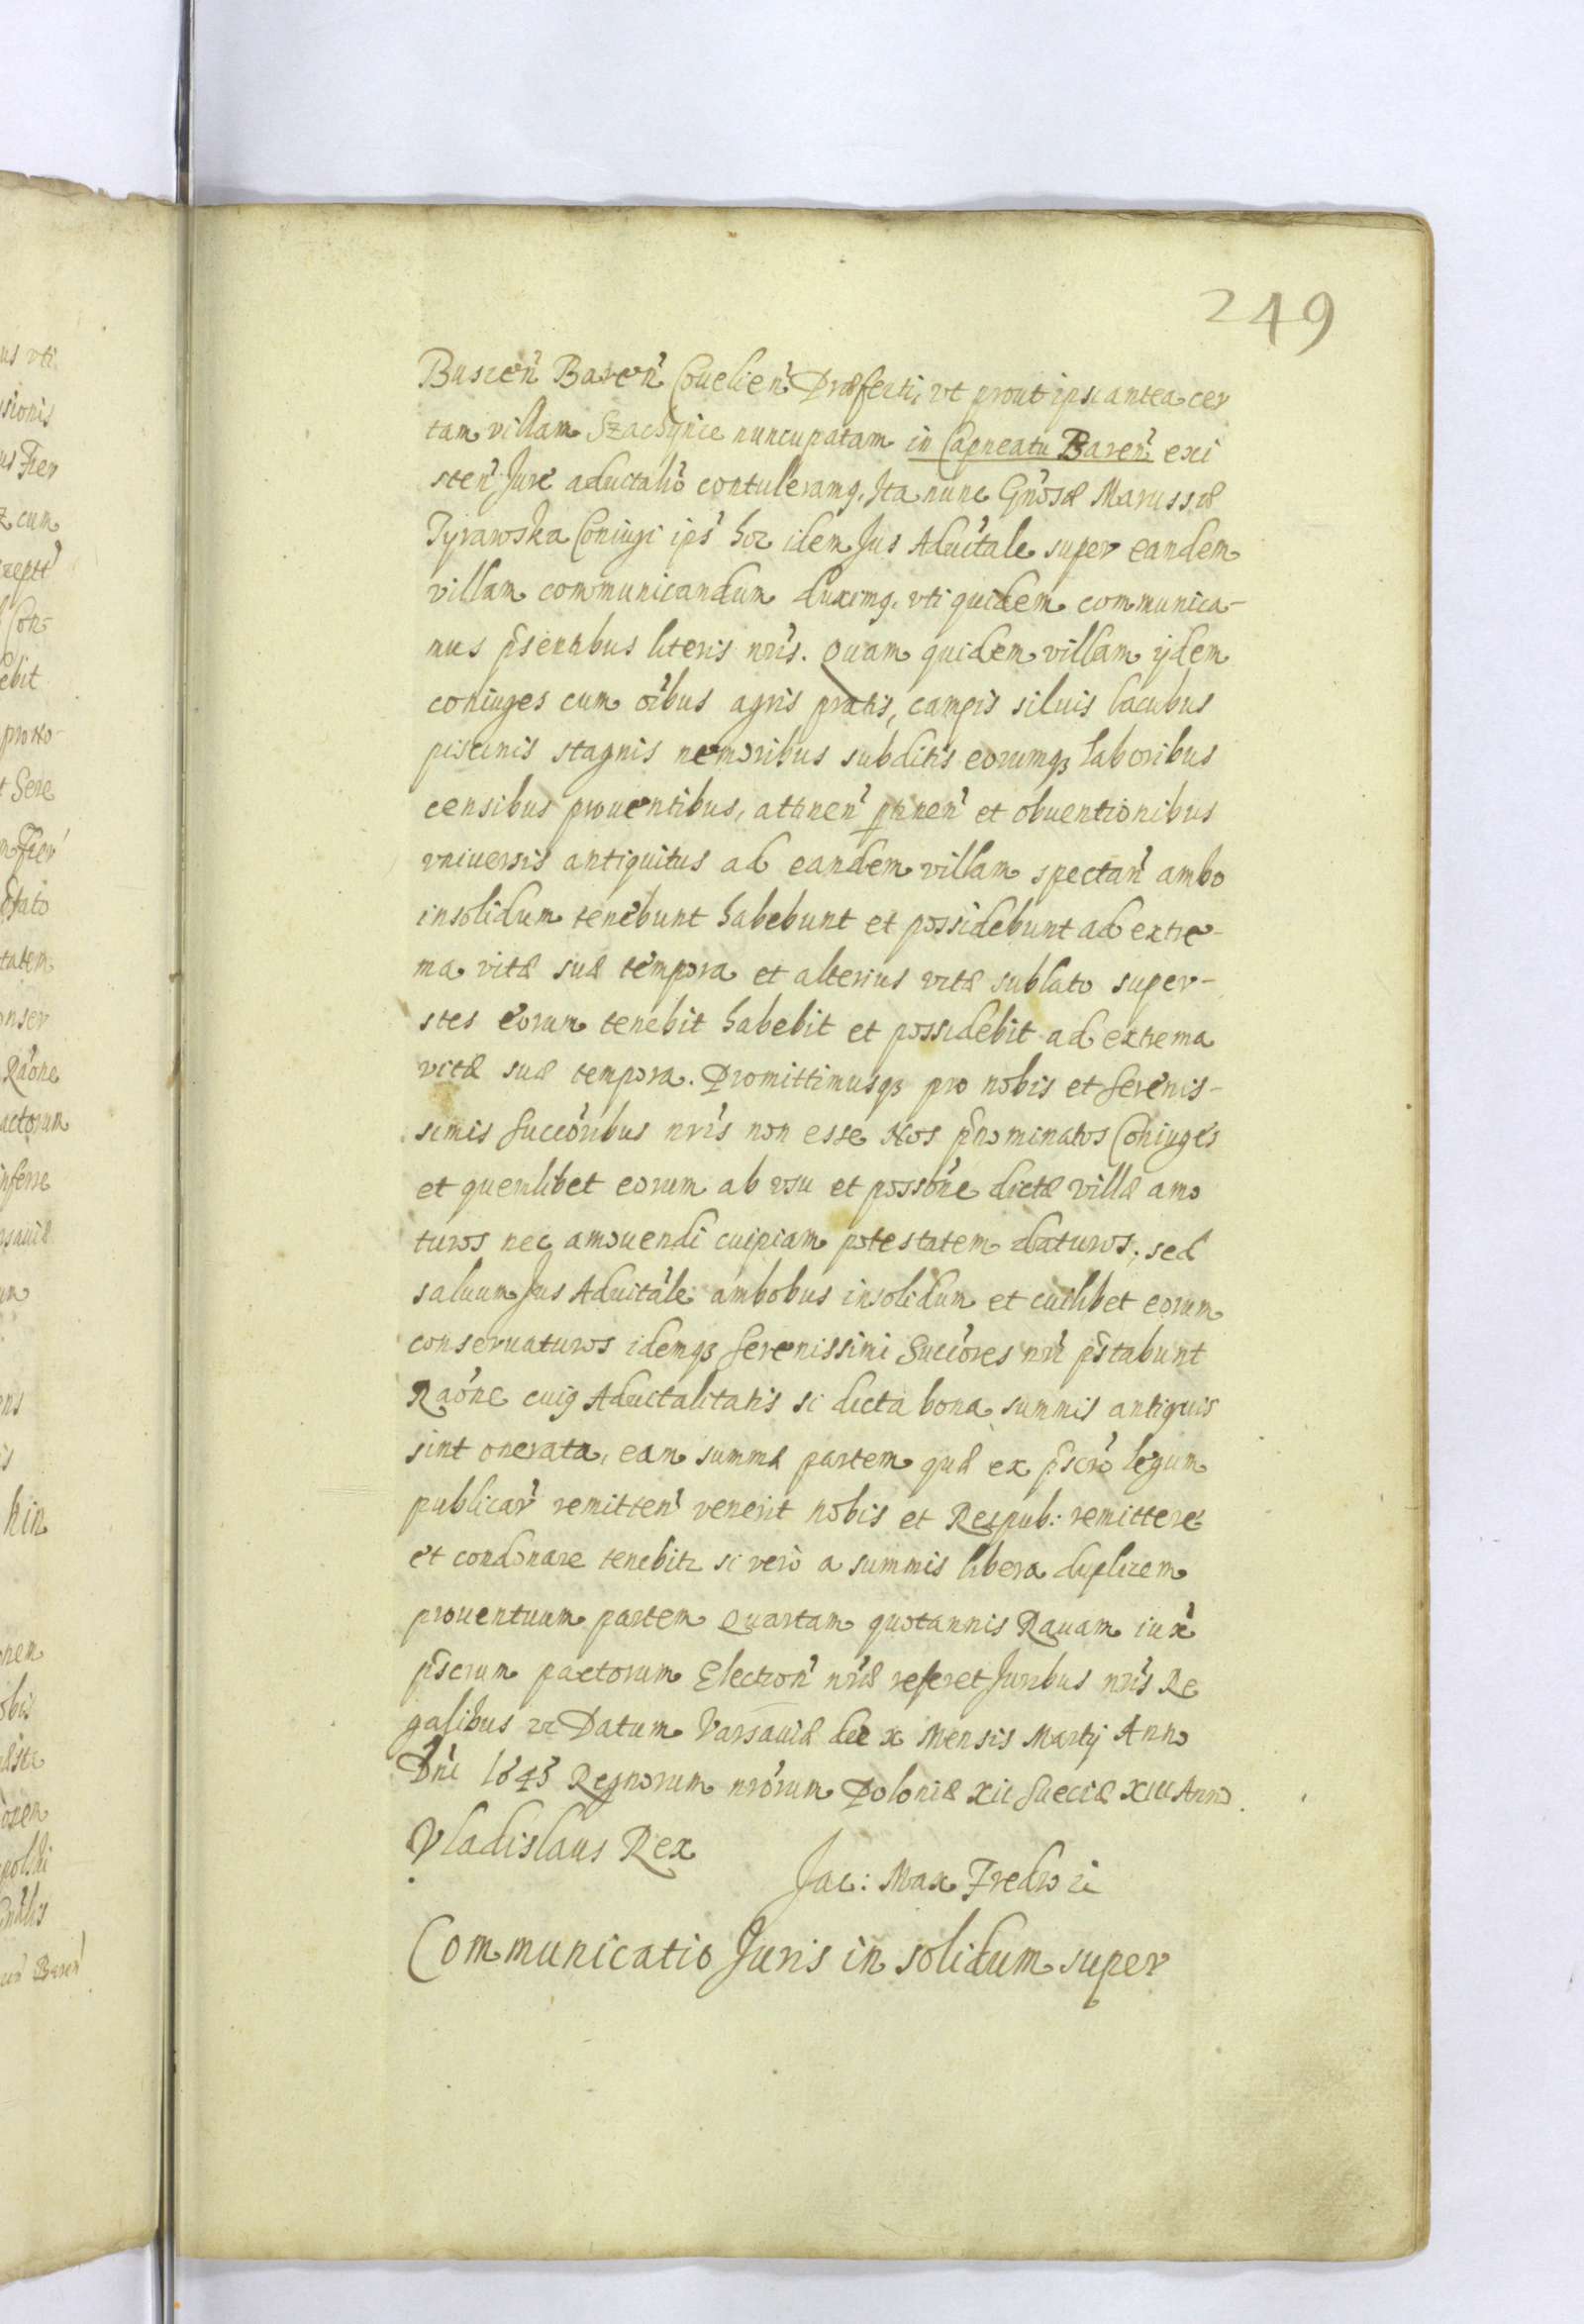 249
Buscen̄ Baren̄ Couelien̄ Præfecti, vt prout ipsi antea cer
tam villam Szaczynce nuncupatam in Capneatu Baren̄ exi
sten̄ Jure aduitalr̄ contuleramq, Ita nunc Gn̄osæ Marussæ
Tyrawska Coniugi ips̄ hoc idem Jus Aduitale super eandem
villam communicandum duximq, vti quidem communica-
mus p̄sentibus literis nr̄is. Quam quidem villam ijdem
coniuges cum oībus agris pratis, campis siluis lacubus
piscinis stagnis nemoribus subditis eorumq3 laboribus
censibus prouentibus, attinen̄ ptinen̄ et obuentionibus
vniuersis antiquitus ad eandem villam spectan̄ ambo
insolidum tenebunt habebunt et possidebunt ad extre-
ma vitæ suæ tempora et alterius vita sublato super-
stes eorum tenebit habebit et possidebit ad extrema
vitæ suæ tempora. Promittimusq3 pro nobis et Serenis-
simis Succōribus nr̄is non esse Nos p̄nominatos Coniuges
et quemlibet eorum ab vsu et possōne dictæ villæ amo
turos nec amouendi cuipiam potestatem daturos, sed
saluum Jus Aduitale ambobus insolidum et cuilibet eorum
conseruaturos idemq3 Serenissimi Succōres nr̄i p̄stabunt
Raōne cuiq Aduitalitatis si dicta bona summis antiquis
sint onerata, eam summæ partem quæ ex p̄scr̄o legum
publicar̄ remitten̄ venerit nobis et Reipub: remittere
et condonare tenebitr si verò a summis libera duplicem
prouentuum partem Quartam quotannis Rauam iux̄
p̄scrum pactorum Election̄ nr̄æ referet Juribus nr̄is Re
galibus rc Datum Varsauiæ die x Mensis Martij Anno
Dn̄i 1645 Regnorum nrōrum Poloniæ xii Sueciæ xiii Anno.
Vladislaus Rex
Jac: Max Fredro ii
Communicatio Juris in solidum super